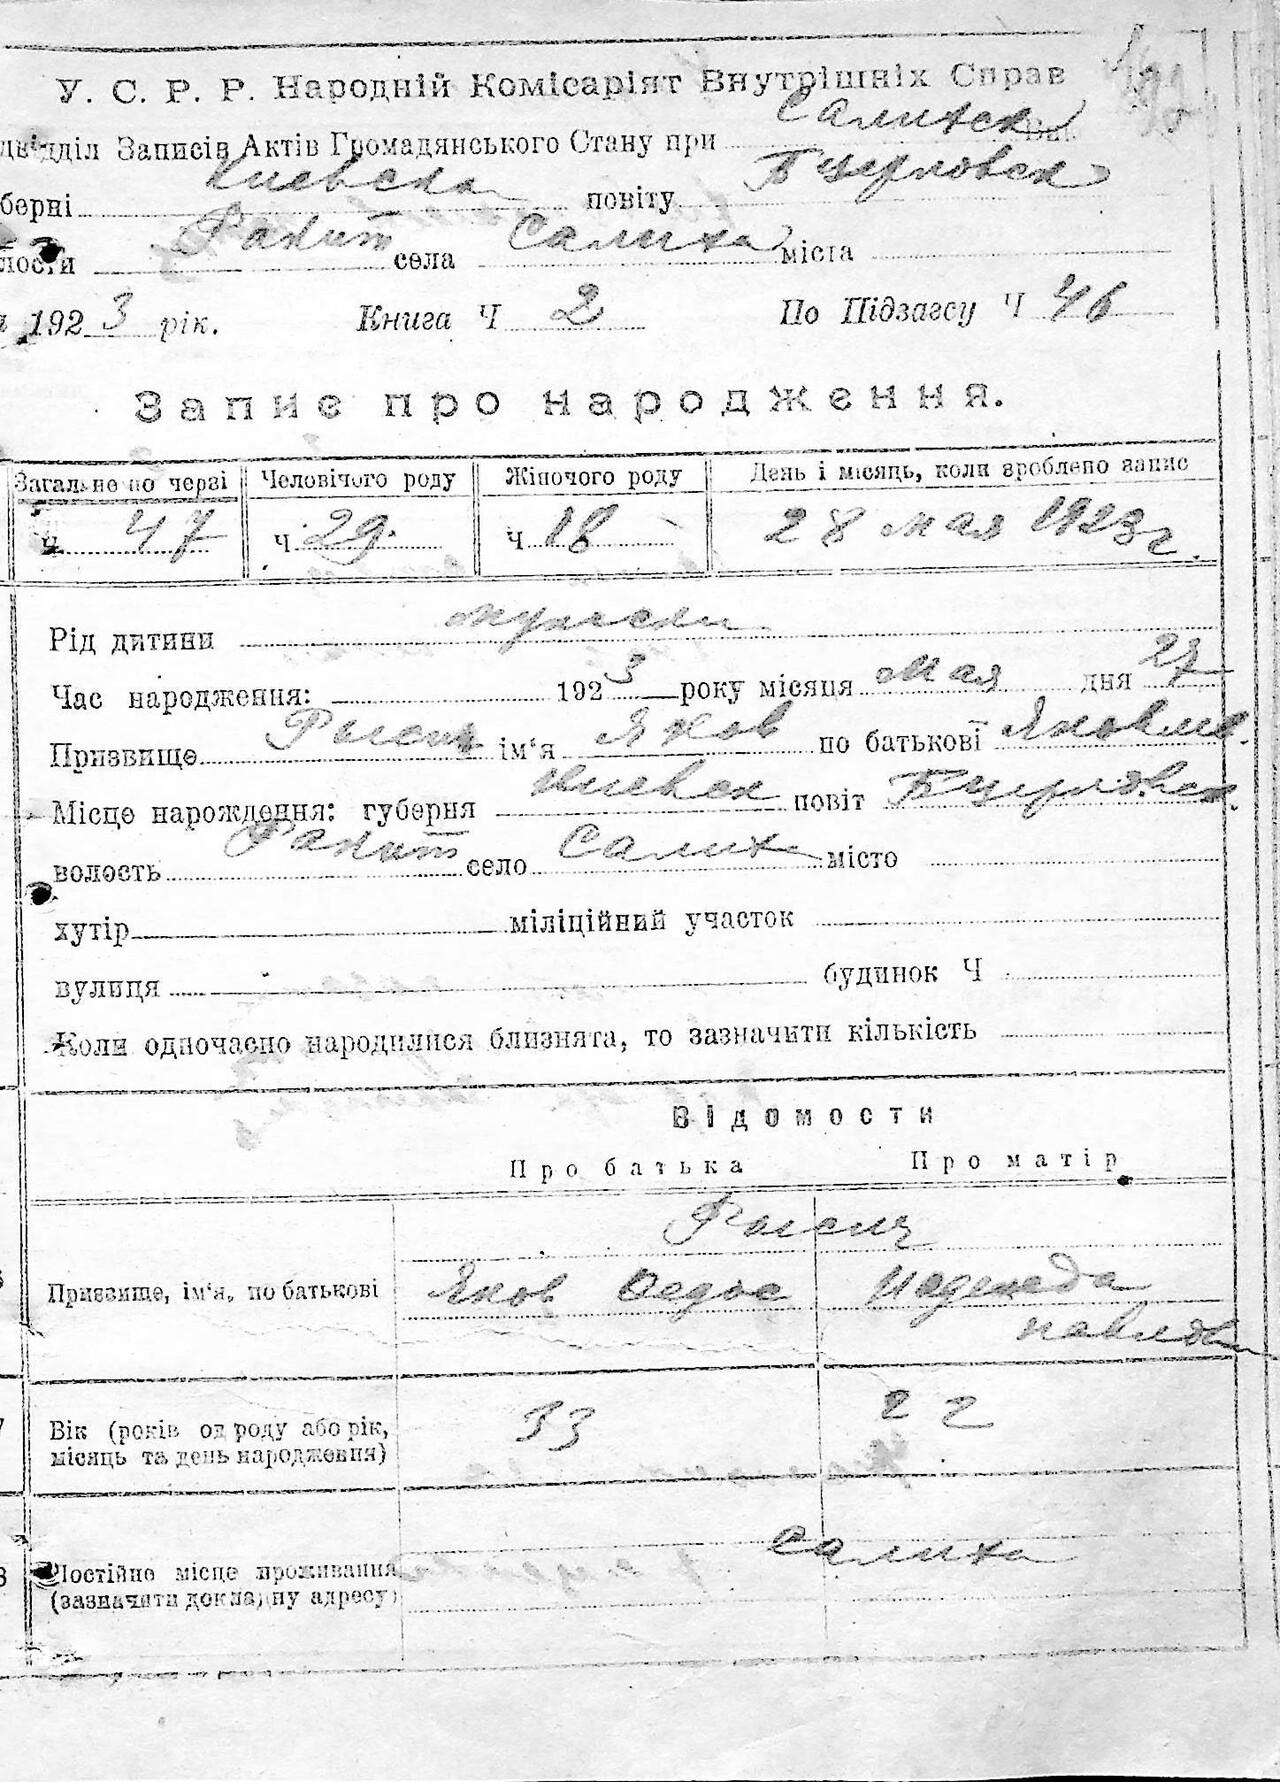 У. С. Р. Р. Народній Комісаріят Внутрішніх Справ
двідділ Записів Актів Громадянського Стану при Салихск
берні Киевска повіту Бцерковск
лости Ракит села Салиха міста
192 3 рік. Книга Ч 2 По Підзагсу Ч 46
Запис про народження.
Загально по черзі Человічого роду Жіночого роду День і місяць, коли зроблено запис
Ч 47 Ч 29. Ч 18 28 мая 1923г.
Рід дитини мужески
Час народження: 192 3 року місяця Мая дня 27
Призвище ім'я Яков по батькові Яковлев.
Місце нарождення: губерня Киевск повіт Бцерковск.
волость Ракит село Салиха місто
хутір міліційний участок
вулиця будинок Ч
Коли одночасно народилися близнята, то зазначити кількість
Відомости
Про батька Про матір
Призвище, ім'я, по батькові Яков Федос Надежда
павловн
Вік (років од роду або рік, 33 22
місяць та день народження)
Салиха
Постійне місце проживання
(зазначити докладну адресу)